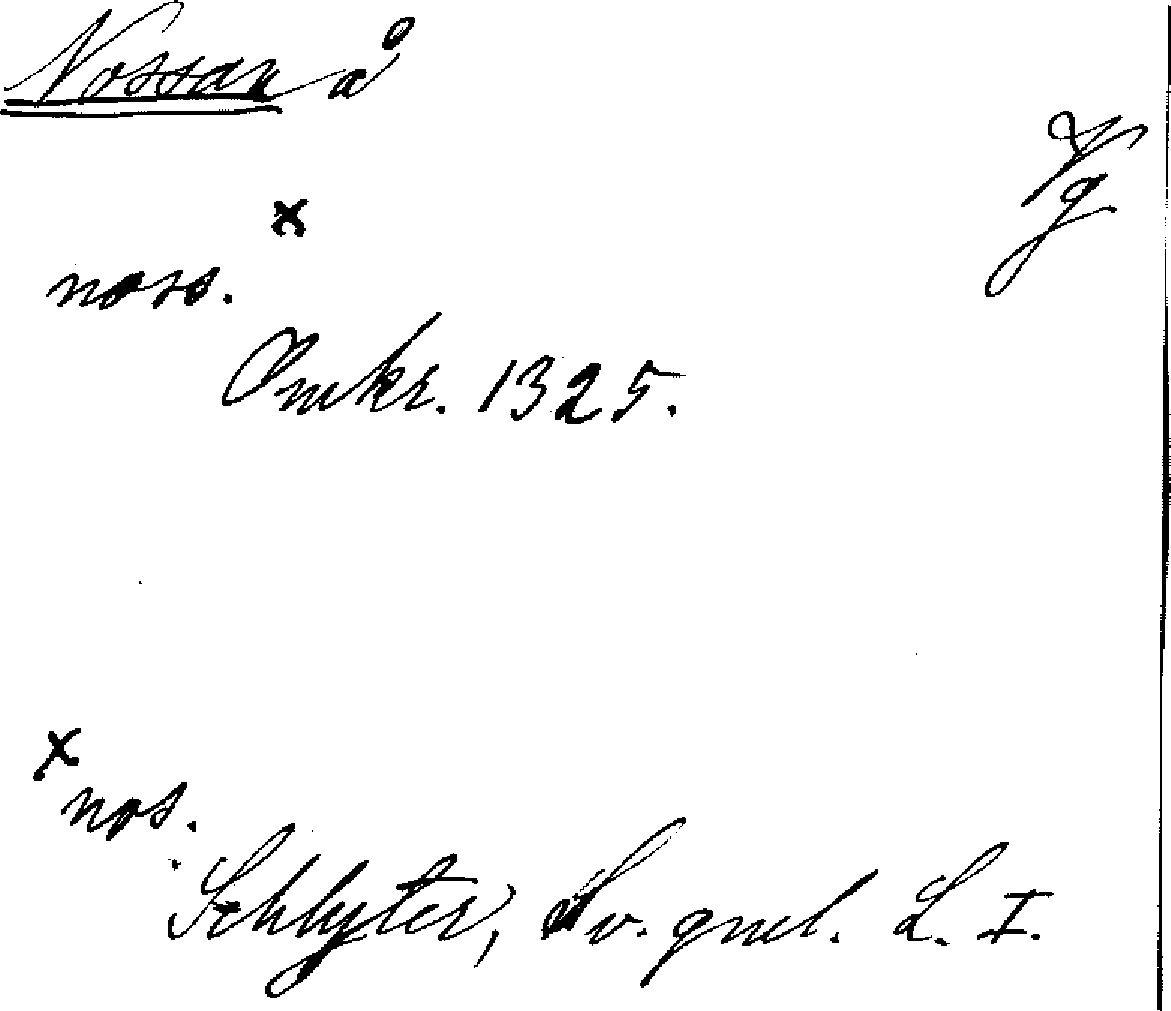 Nossan å
Vg
x
noss.
Omkr. 1325.
x
nos.
Schlyter, Sv. gml. L. I.